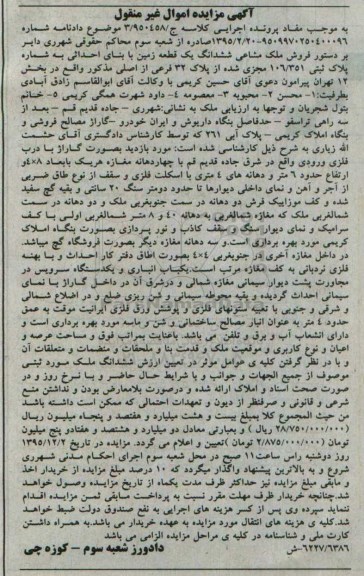 آگهی مزایده اموال غیر منقول
به موجب مفاد پرونده اجرایی کلاسه ج/۳/۹۵۰۴۵۸ موضوع دادنامه شماره
۹۵۰۹۹۷۰۲۵۰۴۰۰۰۹۶-۱۳۹۵/۲/۲۰ صادره از شعبه سوم محاکم حقوقی شهرری دایر
بر دستور فروش ملک مشاعی ششدانگ یک قطعه زمین با بنای احداثی به شماره
پلاک ثبتی ۱۰۶/۳۵۱ مجزی شده از پلاک ۳۲ فرعی از اصلی مذکور واقع در بخش
۱۲ تهران پیرامون دعوی آقای حسین کریمی با وکالت آقای ابوالقاسم زادق آبادی
بطرفیت: ۱- محسن ۲- محبوبه ۳- معصومه ۴- داود شهرت همگی کریمی ۵- خانم
بتول شجریان و توجها به ارزیابی ملک به نشانی: شهرری - جاده قدیم قم - بعد از
سه راهی ترانسفو - حدفاصل بنگاه داریوش و ایران خودرو - گاراژ مصالح فروشی و
بنگاه املاک کریمی - پلاک آبی ۲۶۱ که توسط کارشناس دادگستری آقای حشمت
الله زیاری به شرح ذیل کارشناسی شده است: مورد بازدید بصورت گاراژ با درب
فلزی ورودی واقع در شرق جاده قدیم قم با چهاردهانه مغازه هریک بابعاد ۸×۴ و
ارتفاع حدود ۶ متر و دهانه های ۴ متری با اسکلت فلزی و سقف از نوع طاق ضربی
از آجر و آهن و نمای داخلی دیوارها تا حدود دومتر سنگ ۲۰ سانتی و بقیه گچ سفید
شده و کف موزاییک فرش دو دهانه در سمت جنوبغربی ملک و دو دهانه در سمت
شمالغربی ملک که مغازه شمالغربی به دهانه ۴۰ و ۸ متر شمالغربی اولی با کف
سرامیک و نمای دیوار سنگ و سقف کاذب و نور پردازی بصورت بنگاه املاک
کریمی مورد بهره برداری است. و سه دهانه مغازه دیگر بصورت فروشگاه گچ میباشد.
در داخل مغازه آخری در جنوبغربی ۴×۴ بصورت اطاق دفتر کار احداث و با پهنه
فلزی نردبانی به کف مغازه مرتب است. یکباب انباری و یکدستگاه سرویس در
مجاورت پشت دیوار سیمانی مغازه شمالی و درشرق آن در داخل گاراژ با نمای
سیمانی احداث گردیده و بقیه محوطه سیمانی و شن ریزی ضلع و در اضلاع شمالی
و شرقی و جنوبی با تعبیه ستونهای فلزی و پوشش ورق فلزی ایرانیت موقت به عمق
حدود ۴ متر به عنوان انبار مصالح ساختمانی و شن و ماسه مورد بهره برداری است و
دارای انشعاب آب و برق و تلفن می باشد. باعنایت بمراتب فوق و مساحت عرصه و
اعیان و نوع کاربری و موقعیت ملک و قدمت بنا و ملحقات و منضمات و متعلقات آن
و با در نظر گرفتن کلیه ی عوامل موثر در تعیین ارزش ششدانگ ملک مورد ثبتی
موصوف از جمیع الجهات و جوانب و با شرایط حال حاضر و با نرخ روز و در
صورت صحت اسناد و املاک ارائه شده و درصورت بلامعارض بودن و نداشتن منع
شرعی و قانونی و صرفنظر از دیون و تعهدات احتمالی که ممکن است داشته باشد.
من حیث المجموع کلا بمبلغ بیست و هشت میلیارد و هفتصد و پنجاه میلیون ریال
(۲۸/۷۵۰/۰۰۰/۰۰۰ ریال) و بعبارتی معادل دو میلیارد و هشتصد و هفتادو پنج میلیون
تومان (۲/۸۷۵/۰۰۰/۰۰۰ تومان) تعیین و اعلام می گردد. مزایده در تاریخ ۱۳۹۵/۱۲/۲
روز دوشنبه راس ساعت ۱۱ صبح در محل شعبه سوم اجرای احکام مدنی شهرری
شروع و به بالاترین پیشنهاد واگذار میگردد که ۱۰ درصد مبلغ مزایده از خریدار اخذ
و مابقی مبلغ مزایده نیز حداکثر ظرف مدت یکماه از تاریخ مزایده وصول خواهد
شد. چنانچه خریدار ظرف مهلت مقرر نسبت به پرداخت مابقی ثمن مزایده اقدام
ننماید سپرده وی پس از کسر هزینه های اجرایی به نفع صندوق دولت ضبط خواهد
شد. کلیه ی هزینه های انتقال مورد مزایده به عهده خریدار می باشد. به همراه داشتن
کارت ملی و شناسنامه در کلیه ی مراحل مزایده الزامی می باشد
۶۲۲۷/۶۳۸۶-ش
دادورز شعبه سوم - کوزه چی